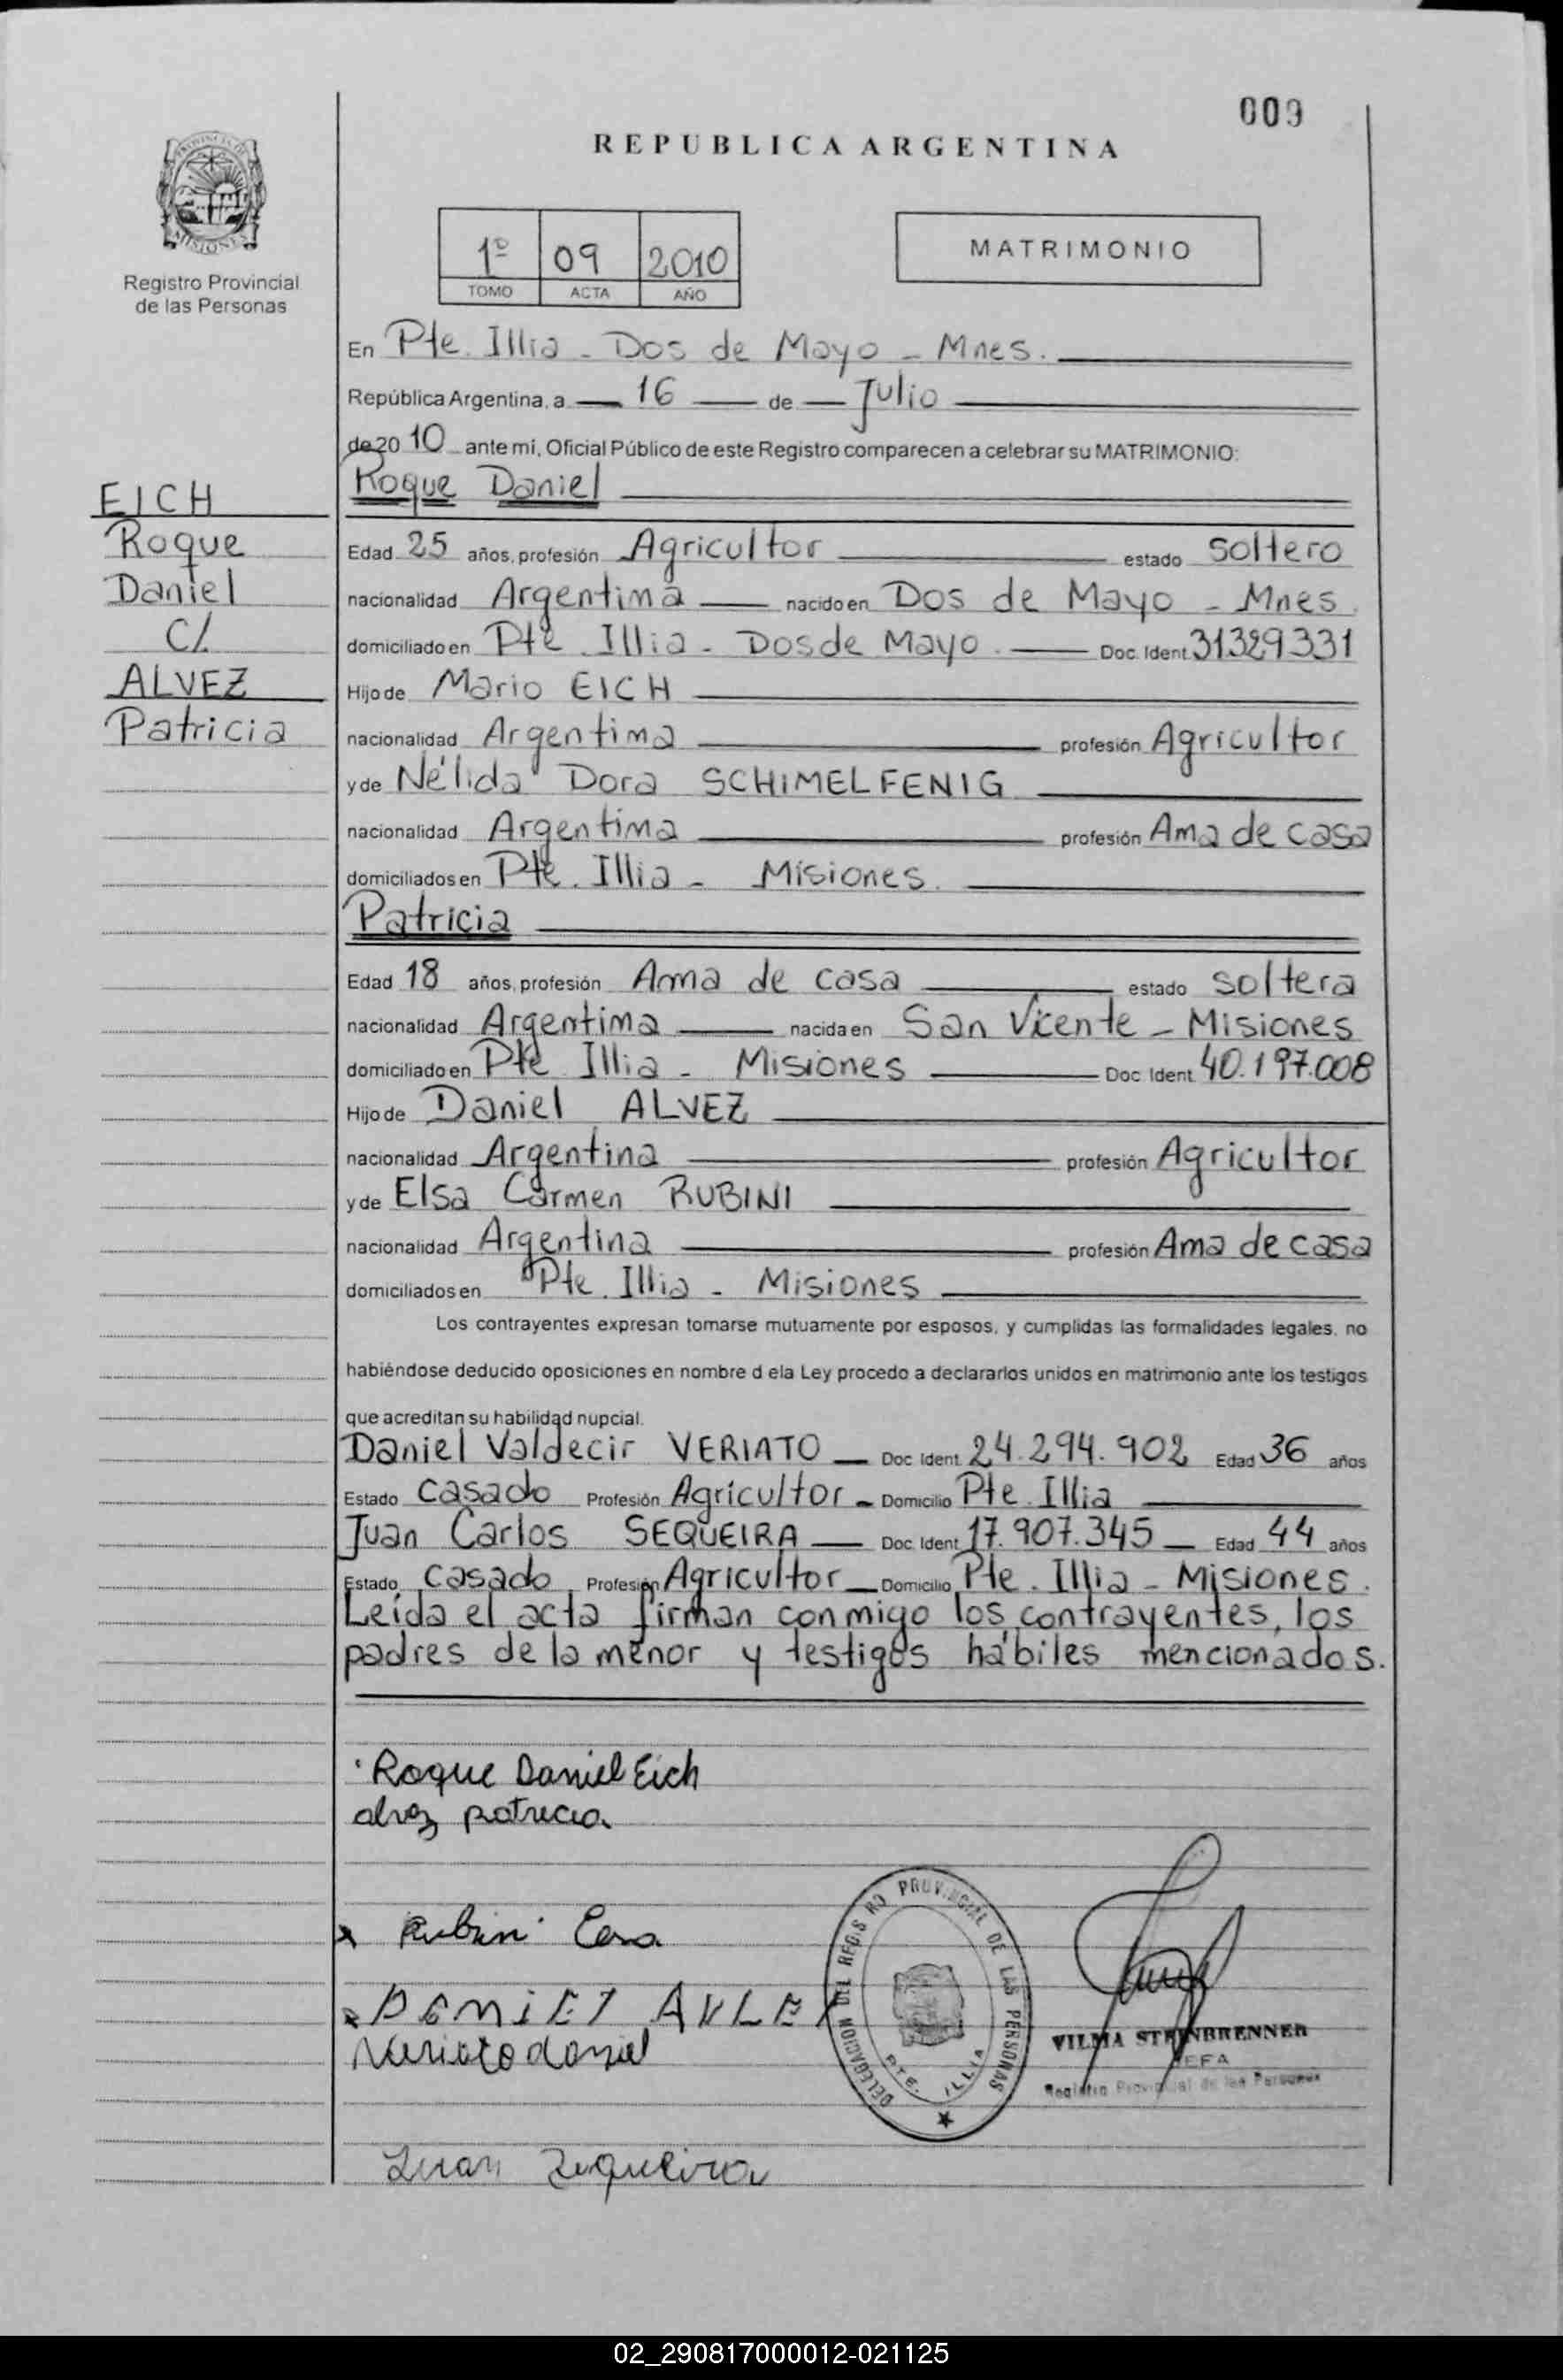 009
REPUBLICA ARGENTINA
PROVINCIA DE MISIONES
Registro Provincial
de las Personas
1º 09 2010
TOMO ACTA AÑO
MATRIMONIO
En Pte. Illia - Dos de Mayo - Mnes.
República Argentina, a 16 de Julio
de 20 10 ante mi, Oficial Público de este Registro comparecen a celebrar su MATRIMONIO:
EICH
Roque
Daniel
C/.
ALVEZ
Patricia
Roque Daniel
Edad 25 años, profesión Agricultor estado soltero
nacionalidad Argentina nacido en Dos de Mayo - Mnes.
domiciliado en Pte. Illia - Dos de Mayo. Doc. Ident. 31329331
Hijo de Mario EICH
nacionalidad Argentina profesión Agricultor
y de Nélida Dora SCHIMELFENIG
nacionalidad Argentina profesión Ama de casa
domiciliados en Pte. Illia - Misiones.
Patricia
Edad 18 años, profesión Ama de casa estado soltera
nacionalidad Argentina nacida en San Vicente - Misiones
domiciliado en Pte Illia - Misiones Doc. Ident. 40.197.008
Hijo de Daniel ALVEZ
nacionalidad Argentina profesión Agricultor
y de Elsa Carmen RUBINI
nacionalidad Argentina profesión Ama de casa
domiciliados en Pte. Illia - Misiones
Los contrayentes expresan tomarse mutuamente por esposos, y cumplidas las formalidades legales, no
habiéndose deducido oposiciones en nombre d ela Ley procedo a declararlos unidos en matrimonio ante los testigos
que acreditan su habilidad nupcial.
Daniel Valdecir VERIATO Doc. Ident. 24.294.902 Edad 36 años
Estado casado Profesión Agricultor - Domicilio Pte. Illia
Juan Carlos SEQUEIRA Doc. Ident. 17.907.345 Edad 44 años
Estado casado Profesión Agricultor Domicilio Pte. Illia - Misiones.
Leída el acta firman conmigo los contrayentes, los
padres de la menor y testigos hábiles mencionados.
Roque Daniel Eich
alvez patricia
x Rubini
x DEMIEL AVLEZ
Veriato daniel
Juan Zequeira
DELEGACION DEL REGISRO PROVINCIAL DE LAS PERSONAS
PTE. ILLIA
VILMA STEINBRENNER
JEFA
Registro Provincial de las Personas
02_290817000012-021125